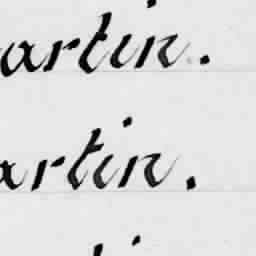 artin.
artin.